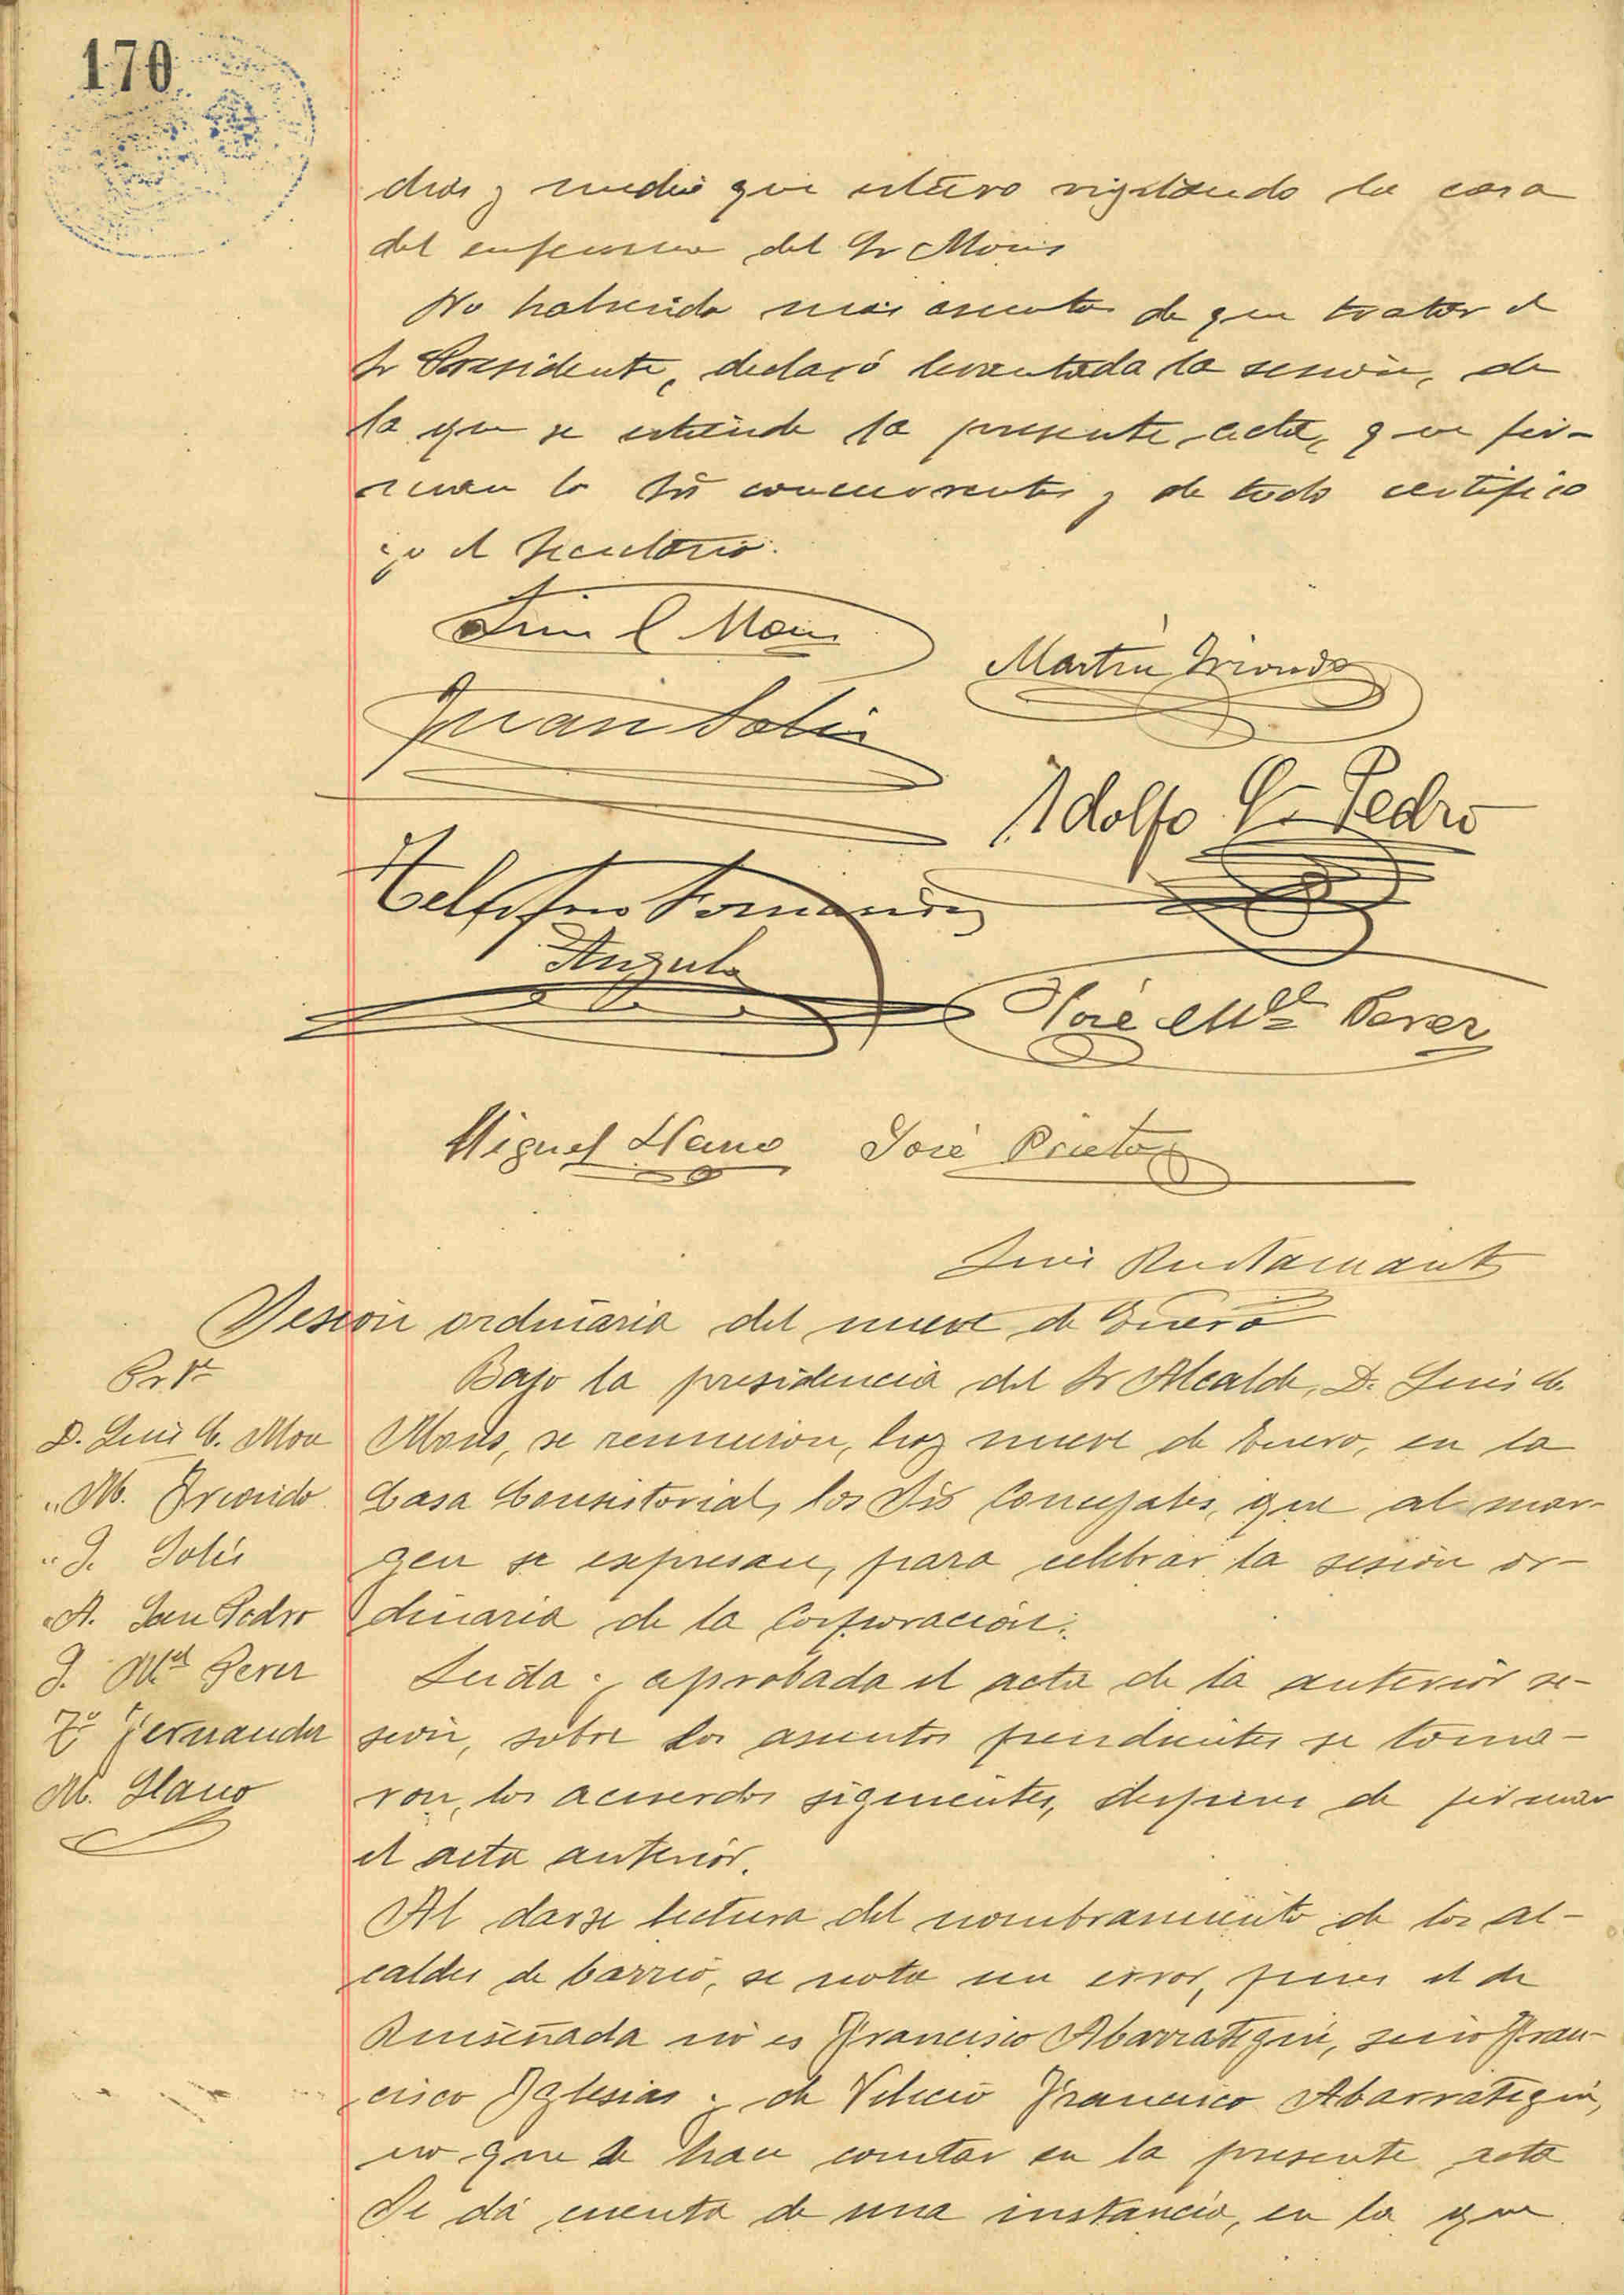 170
dias y medio que estuvo vigilando la casa
del enfermo del Sr Moris
No habiendo mas asuntos de que tratar el
Sr Presidente, declaró levantada la sesión, de
la que se extiende la presente acta, que fir-
man lo Srs concurrentes y de todo certifico
yo el Secretario.
Luis C Moris
Martin Iriondo
Juan Solis
Adolfo S. Pedro
Telesforo Fernandez
Angulo
José Mª Perez
Miguel Llano José Prieto
Luis Bustamante
Sesión ordinaria del nueve de Enero
Pr. te
D. Luis C. Mon
" M. Iriondo
" J. Solis
" A. San Pedro
J. Mª Perez
T. Fernandez
M. Llano
Bajo la presidencia del Sr Alcalde, D. Luis C.
Moris, se reunieron, hoy nueve de Enero, en la
Casa Consistorial, los Srs Concejales, que al mar-
gen se expresan, para celebrar la sesión or-
dinaria de la Corporación.
Leida y aprobada el acta de la anterior se-
sión, sobre los asuntos pendientes se toma-
ron, los acuerdos siguientes, despues de firmar
el acta anterior.
Al darse lectura del nombramiento de los al-
caldes de barrio, se nota un error, pues el de
Ruiseñada no es Francisco Abarrategui, sino Fran-
cisco Iglesias y de Velecio Francisco Abarrategui,
que se hace constar en la presente acta
Se dá cuenta de una instancia, en la que